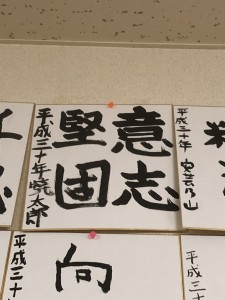 意志
堅固
平成三十年 暁太郎
平成三十年 安芸乃山
向
平成三
平成三